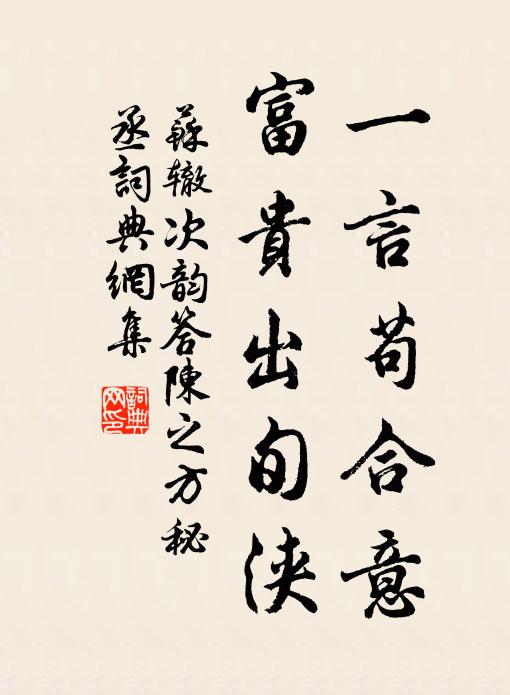 一言苟合意
富貴出旬浹
蘇辙次韵答陳之方秘
丞詞典網集
詞典
网印